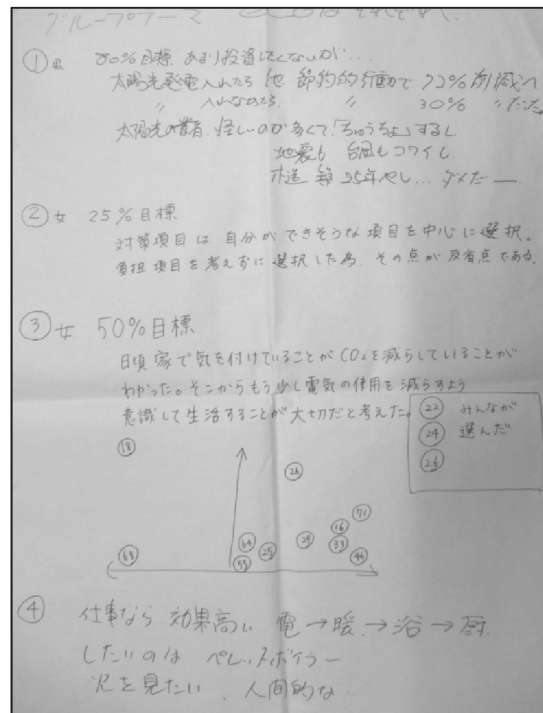 グループテーマ
① 男 80%目標 あまり投資したくないが…
太陽光発電入れたら 他 節約的行動で 72%削減へ
〃 入れなのたら 〃 30% 〃 だった
太陽光の業者 怪しいのが多くて「ちゅうちょ」するし
地震も 台風もコワイし
木造 築25年やし… ダメだ ―
② 女 25%目標
対策項目は 自分ができそうな項目を中心に選択。
負担項目を考えずに選択した為、その点が反省点である。
③ 女 50%目標
日頃家で気を付けていることがCO₂を減らしていることが
わかった。そこからもう少し電気の使用を減らすよう
意識して生活することが大切だと考えた。
㉒ みんなが
㉔ 選んだ
㉖
⑱
㉖
71
16
64
29
33
25
68
46
④ 仕事なら 効果高い 電→暖→浴→厨
したいのは ペレットボイラー
火を見たい、人間的な